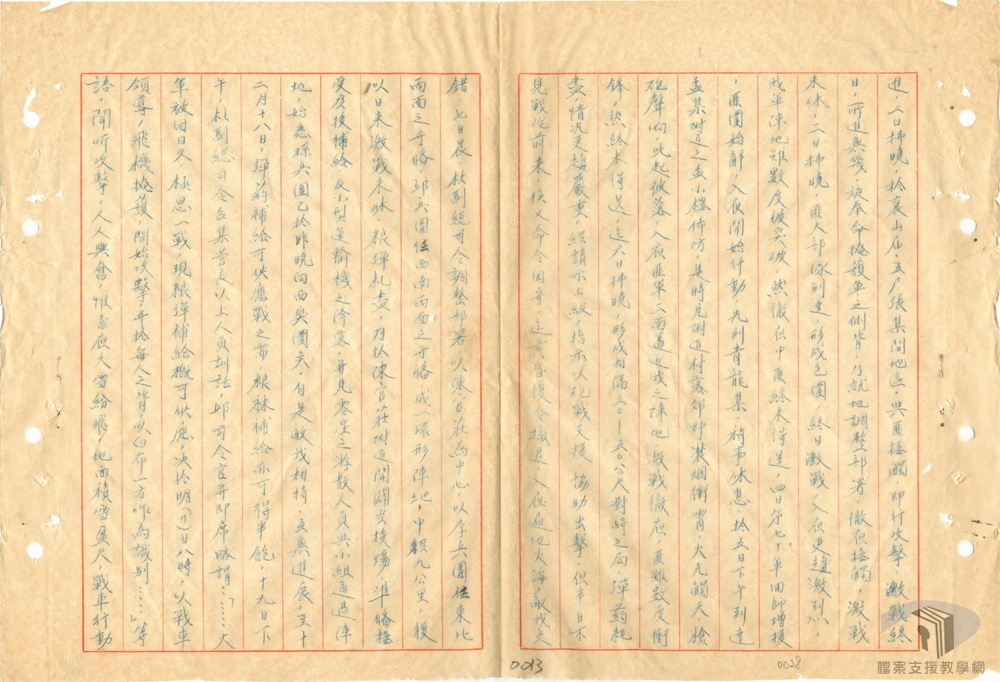 進，二日拂曉，於襄山庙、五户張集間地區，與匪接觸，即行攻擊，激戰終
日，所進無幾，旋奉命掩護軍之側背，乃就地調整部署，徹夜接觸，激戰
未休，三日拂曉，匪大部隊到達，形成包圍，終日激戰，入夜更趨激烈，
我軍陣地雖數度被突破，然徹夜中匪終未得逞，四日奉七十軍回師增援
，匪圍始解，入夜開始行動，先到青龍集，稍事休息，於五日下午到達
孟集附近之孟小樓佈防，是時見附近村落郊野濃烟衝霄，火光觸天，槍
砲聲响此起彼落，入夜匪軍三面逼近我之陣地，激戰徹夜，匪雖數度衝
鋒，然終未得逞，迄六日拂曉，形成相隔三〇—五〇公尺對峙之局，彈藥耗
盡，情况更趨嚴重，經請示上級，指示以砲戰支援，協助出擊，但半日不
見戰從前来，后又命令固守，迄黃昏復令撤退，入夜遍地火海，敵我交
錯，七日晨，杜副總司令調整部署，以陳官莊為中心，以李兵團任東北
兩面之守備，邱兵團任西南兩面之守備，成一環形陣地，中領九公里，復
以日来激戰未休，粮彈耗盡，乃於陳官莊附近開闢空投場，準備接
受尔後補給及小型運輸機之降落，并見零星之游散人員與小組通過陣
地，始悉孫兵團已於昨晚向西突圍矣，自是敵我相持，立無進展，至十
二月十八日，彈葯補給可供應戰之需，粮秣補給亦可得半飽，十九日下
午，杜副總司令召集营長以上人員訓話，邱司令官并即席略謂：「……大
軍被困日久，極思一戰，現粮彈補給概可供應，决於明(廿)日八時，以戰車
領導，飛機掩護，開始攻擊，并於每人之背以白布一方作為識別……」等
語，聞听攻擊，人人興奮，惟當夜大雪紛飛，地面積雪盈尺，戰車行動
0013
0028
檔案支援教學網